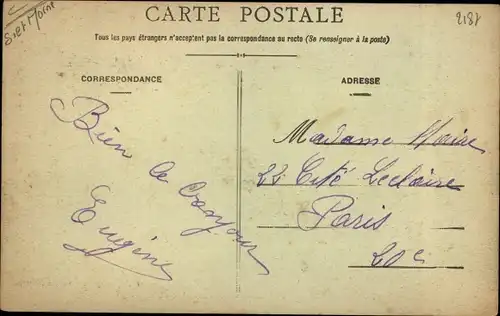 S et Marne
2187
CARTE POSTALE
Tous les pays étrangers n'acceptent pas la correspondance au recto (Se renseigner à la poste)
CORRESPONDANCE
ADRESSE
Bien le bonjour
Eugène
Madame
23 Cité Leclaire
Paris
20e